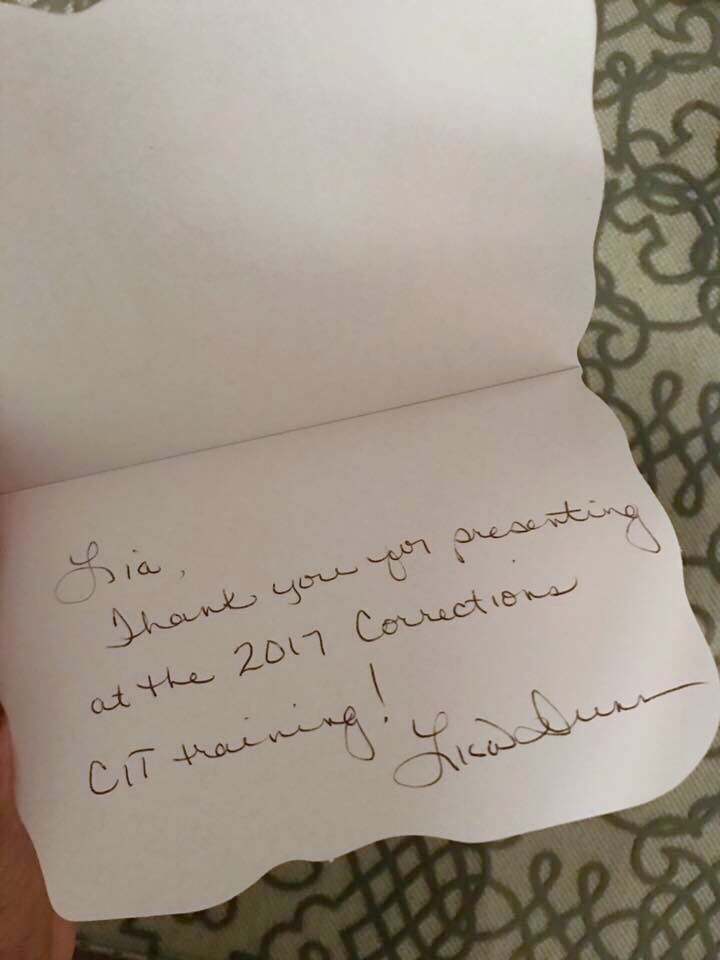 Lia,
Thank you for presenting
at the 2017 Corrections
CIT training!
Lisa Dunn